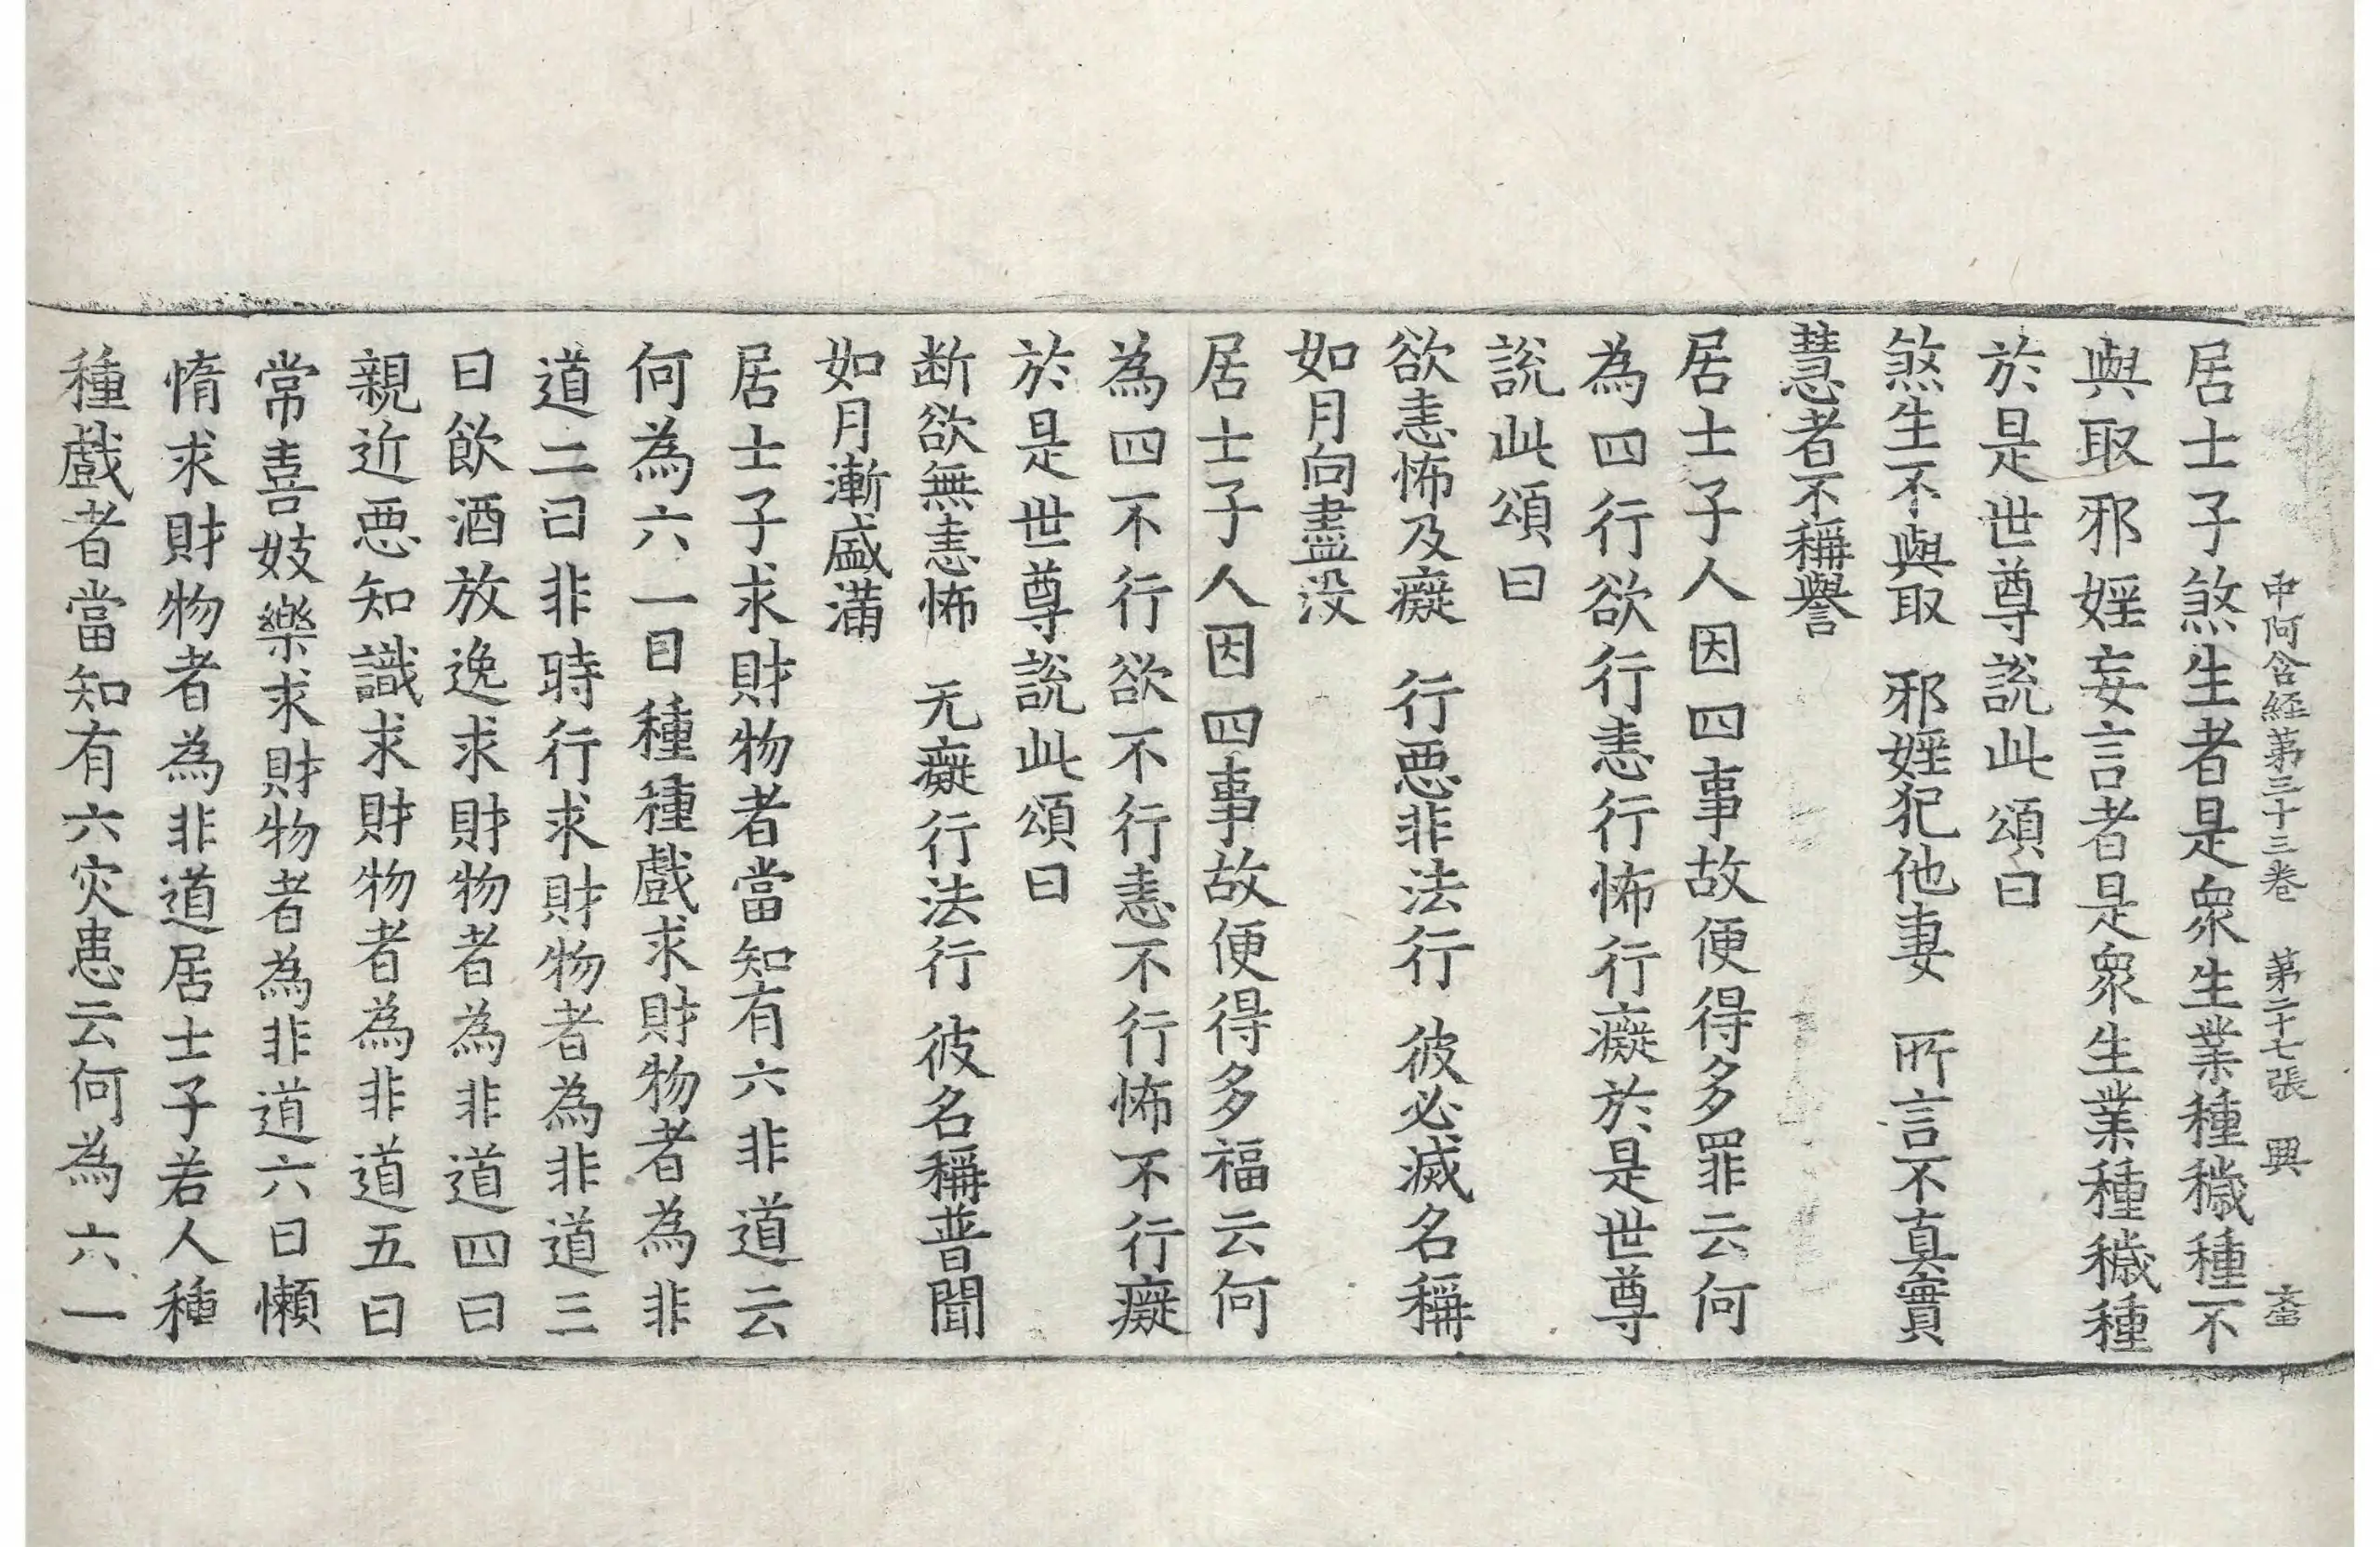 中阿含経第三十三巻 第二十七張 興
居士子煞生者是衆生業種穢種不
與取邪婬妄言者是衆生業種穢種
於是世尊說此頌曰
煞生不與取 邪婬犯他妻 所言不真實
慧者不稱譽
居士子人因四事故便得多罪云何
為四行欲行恚行怖行癡於是世尊
說此頌曰
欲恚怖及癡 行惡非法行 彼必滅名稱
如月向盡没
居士子人因四事故便得多福云何
為四不行欲不行恚不行怖不行癡
於是世尊說此頌曰
断欲無恚怖 无癡行法行 彼名稱普聞
如月漸盛滿
居士子求財物者當知有六非道云
何為六一曰種種戲求財物者為非
道二曰非時行求財物者為非道三
曰飲酒放逸求財物者為非道四曰
親近惡知識求財物者為非道五曰
常喜妓樂求財物者為非道六曰懶
惰求財物者為非道居士子若人種
種戲者當知有六灾患云何為六一